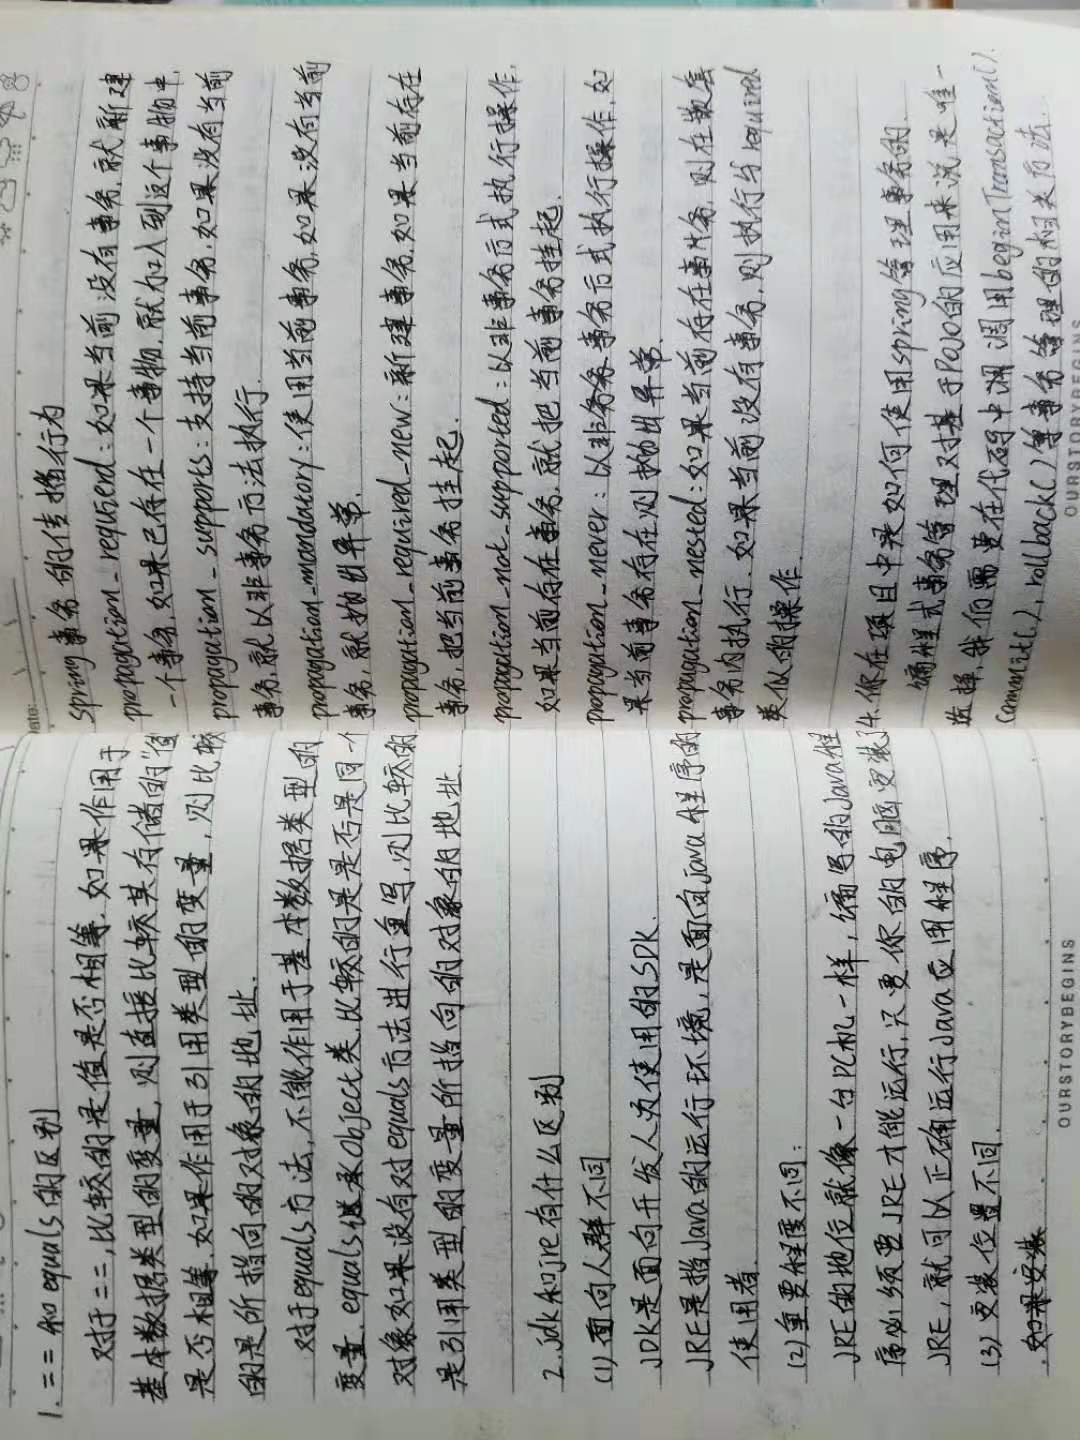 1. == 和 equals的区别
对于==,比较的是值是否相等.如果作用于
基本数据类型的变量,则直接比较其存储的"值"
是否相等.如果作用于引用类型的变量,则比较
的是所指向的对象的地址.
对于equals方法,不能作用于基本数据类型的
变量.equals继承Object类.比较的是是否是同一个
对象如果没有对equals方法进行重写,则比较的
是引用类型的变量所指向的对象的地址.
2.jdk和jre有什么区别
(1)面向人群不同
JDK是面向开发人员使用的SDK.
JRE是指Java的运行环境,是面向java程序的
使用者.
(2)重要程度不同:
JRE的地位就像一台PC机一样,编写的Java程
序必须要JRE才能运行,只要你的电脑安装了
JRE,就可以正确运行Java应用程序.
(3)安装位置不同.
OURSTORYBEGINS
Date:
spring事务的传播行为
propagation_required:如果当前没有事务.就新建
一个事务.如果已存在一个事物.就加入到这个事物中.
propagation_supports:支持当前事务.如果没有当前
事务.就以非事务方法执行.
propagation_mandatory:使用当前事务.如果没有当前
事务,就抛出异常.
propagation_required_new:新建事务.如果当前存在
事务,把当前事务挂起.
propagation_not_supported:以非事务方式执行操作.
如果当前存在事务.就把当前事务挂起.
propagation_never:以非务务事务方式执行操作.如
果当前事务存在则抛出异常.
propagation_nested:如果当前存在事务.则在嵌套
事务内执行.如果当前没有事务.则执行与required
类似的操作.
4.你在项目中是如何使用spring管理事务的.
编程式事务管理对基于POJO的应用来说是唯一
选择,我们需要在代码中调用beginTransaction().
commit(),rollback()等事务管理的相关方法.
OURSTORYBEGINS